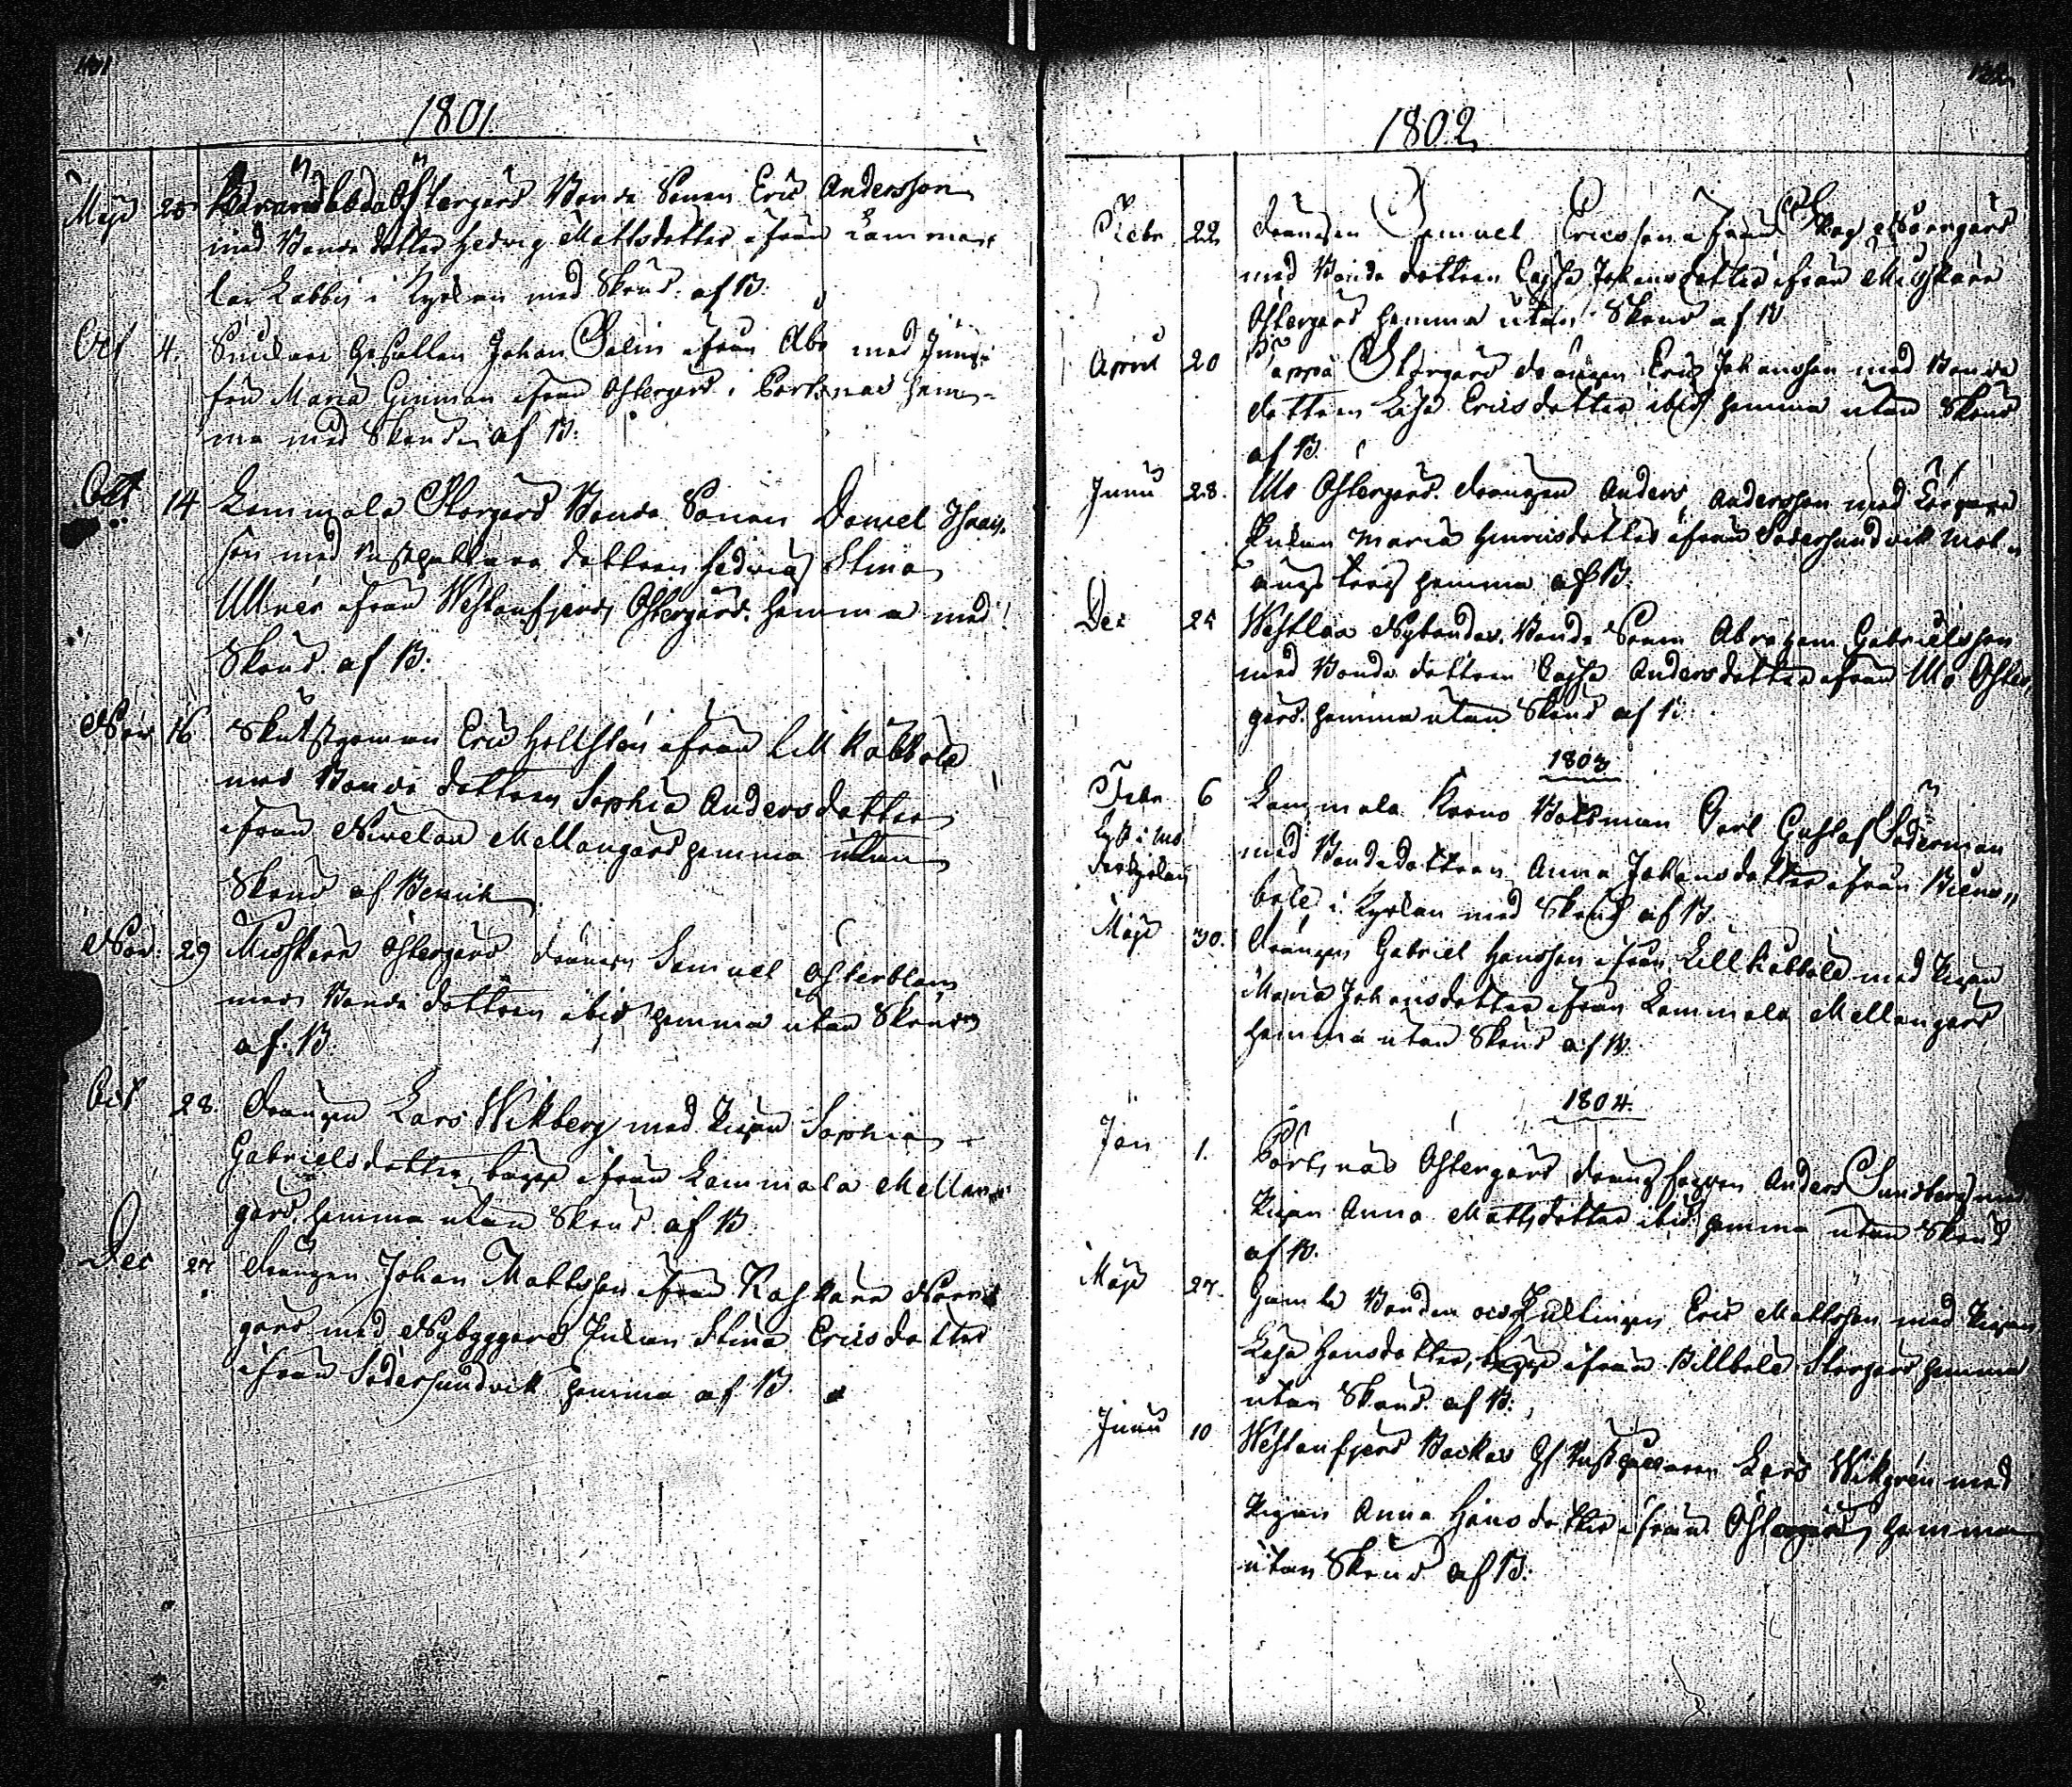 1801
Maji 25 Östergård Bonde Sonen Eric Andersson
med Bonde dotter Hedvig Mattsdotter ifrån Lamma¤
lax Labby i Kyrkan med Skrud. af B:
Oct 4. Snickare Gesällen Johan Salin ifrån Åbo med Jung¤
frun Maria Ginman ifrån Östergård i Pörtsnäs hem¤
ma med Skrud af B:
Oct 14 Lammala Storgård Bonde Sonen Daniel Isaacs¤
son med dottren Hedvig Stina
Ullner ifrån Westanfjerds Östergård. hemma med
Skrud af B:
Nov 16 Eric Hellsten ifrån Lill Kabböle
med Bonde dottren Sophia Andersdotter
ifrån Nivelax Mellangård hemma utan
Skrud af
Nov: 29 Misskärr Östergård drängen Samuel Österblom
med Bonde dottren ibid hemma utan Skrud
af: B.
Oct 28. Drängen Lars Wikberg med Pigan Sophia
Gabrielsdotter, bägge ifrån Lammala Mellan
gård hemma utan Skrud af B
Dec 27 Drängen Johan Mattsson ifrån Norr
gård med Nybyggare Enkan Stina Ericsdotter
ifrån Södersundvik hemma af B.
1802
Febr 22 Drängen Samuel Ericsson ifrån Skog Norrgård
med Bonde dottren Cajsa Johansdotter ifrån Misskärr
Östergård hemma utan Skrud af B
April 20 Pappå Storgård drängen Eric Johansson med Bonde
dottren Lisa Ericsdotter ibid hemma utan Skrud
af B.
Junii 28. Mo Östergård. drängen Anders Andersson med
Enkan Maria Henricsdotter ifrån Södersundvik
torp hemma af B.
Dec 25 Westlax Nybondas. Bonde Sonen Abraham Gabrielsson
med Bonde dottren Cajsa Andersdotter ifrån Mo Öster¤
gård. hemma utan Skrud af B.
1803
Febr 6 Lammala Krono Båtsman Carl Gustaf Söderman
med Bondedottren Anna Johansdotter ifrån Biens¤
böle i Kyrkan med Skrud af B
Maji 30. Drängen Gabriel Hansson ifrån Lillkabböle med Pigan
Maria Johansdotter ifrån Lammala Mellangård
hemma utan Skrud af B.
1804.
Jan 1. Pörtsnäs Östergård Anders Sundberg med
Pigan Anna Mattsdotter ibid: hemma utan Skrud
af B.
Maji 27. Gamle Bonden och Enklingen Eric Mattsson med Pigan
Lisa Hansdotter, bägge ifrån Billböle Storgård hemma
utan Skrud af B:
Junii 10 Westanfjerd Backas Lars Wikgrén med
Pigan Anna Hansdotter ifrån Östergård, hemma
utan Skrud af B: